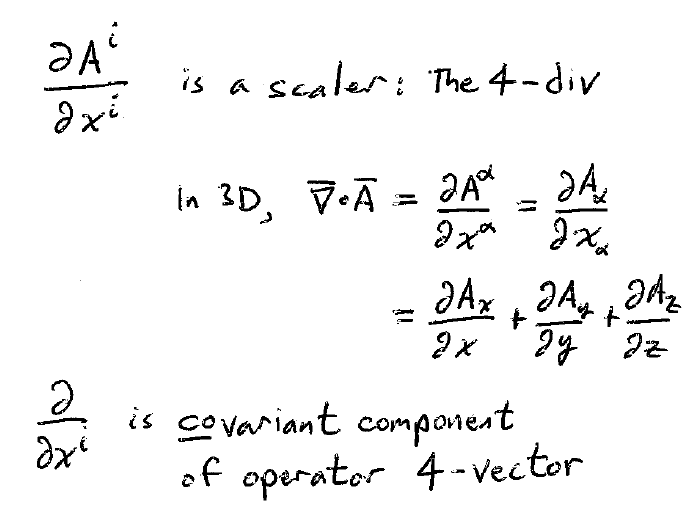 ∂Aⁱ/∂xⁱ is a scaler: The 4-div
In 3D, ∇̅·A̅ = ∂A^α/∂x^α = ∂A_α/∂x_α
= ∂Aₓ/∂x + ∂A_y/∂y + ∂A_z/∂z
∂/∂xⁱ is covariant component
of operator 4-vector